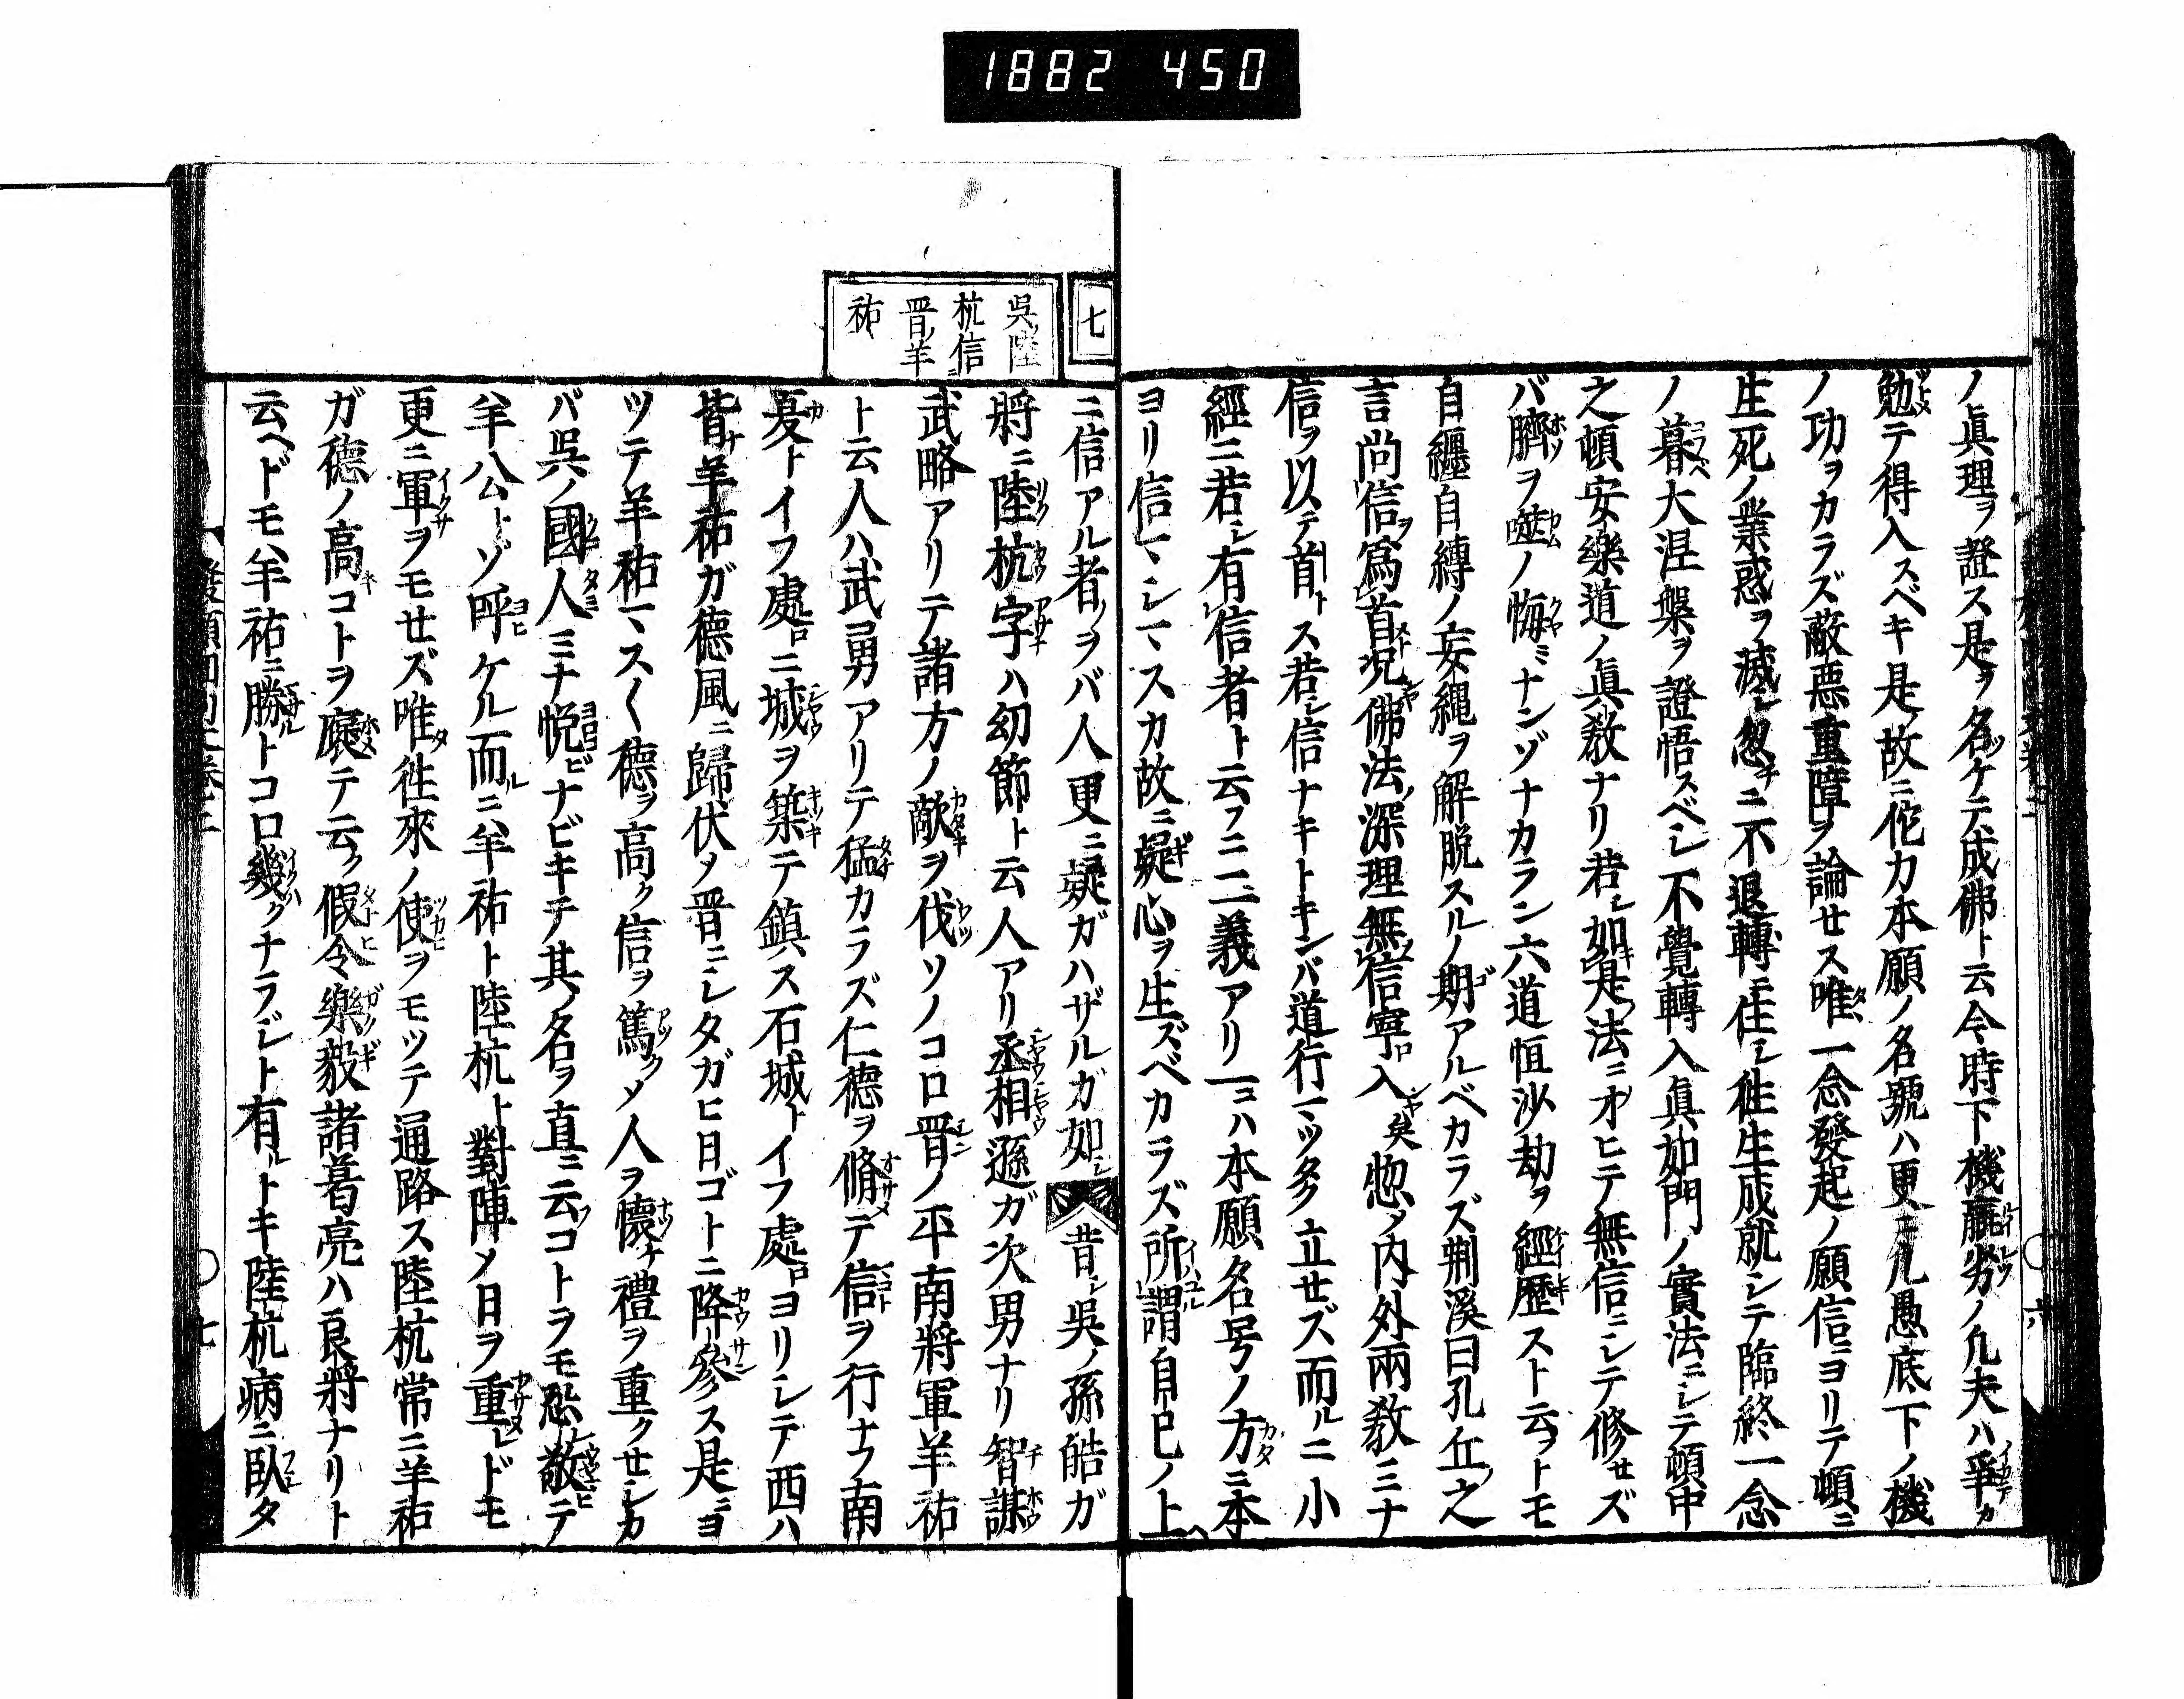 1882 450
ノ眞理ヲ證ス是ヲ名ケテ成佛ト云今時下機羸劣ノ凡夫ハ爭カ
勉テ得入スベキ是ノ故ニ佗力本願ノ名號ハ更ニ凡愚底下ノ機
ノ功ヲカラズ敵惡重障ヲ論セス唯一念發起ノ願信ニヨリテ頓ニ
生死ノ業惑ヲ滅シ忽チニ不退轉ニ住シ徃生成就シテ臨終一念
ノ暮大涅槃ヲ證悟スベシ不覺轉入眞如門ノ實法ニシテ頓中
之頓安樂道ノ眞教ナリ若シ如是法ニオヒテ無信ニシテ修セズ
バ臍ヲ噬ノ悔ミナンゾナカラン六道恒沙劫ヲ經歷スト云フトモ
自纏自縛ノ妄縄ヲ解脱スルノ期アルベカラズ荆溪曰孔丘之
言尚信ヲ爲首況佛法深理無信寧入矣惣メ内外兩教ミナ
信ヲ以テ首トス若シ信ナキトキンバ道行マツタク立セズ而ルニ小
經ニ若シ有信者ト云フニ二義アリ一ニハ本願名号ノ方ニ本
ヨリ信マシマスカ故ニ疑心ヲ生ズベカラズ所謂自巳ノ上
七
吳ノ陸
杭信
晋ノ羊
祐
ニ信アル者ヲバ人更ニ疑ガハザルガ如シ昔シ吳ノ孫皓ガ
將ニ陸杭字ハ幼節ト云人アリ丞相遜ガ次男ナリ智謀
武略アリテ諸方ノ敵ヲ伐ツソノコロ晋ノ平南將軍羊祐
ト云人ハ武勇アリテ猛カラズ仁德ヲ脩テ信ヲ行ナフ南
夏トイフ處ニ城ヲ築テ鎮ス石城トイフ處ヨリシテ西ハ
皆羊祐ガ德風ニ歸伏メ晋ニシタガヒ日ゴトニ降參ス是ニヨ
ツテ羊祐マスく德ヲ高ク信ヲ篤クメ人ヲ懷ケ禮ヲ重クセシカ
バ吳ノ國人ミナ悦ビナビキテ其ノ名ヲ直ニ云コトヲモ恐敬テ
羊公トゾ呼ケル而ルニ羊祐ト陸杭ト對陣メ日ヲ重レドモ
更ニ軍ヲモセズ唯徃來ノ使ヲモツテ通路ス陸杭常ニ羊祐
ガ德ノ高コトヲ褒テ云ク假令樂毅諸葛亮ハ良將ナリト
云ヘドモ羊祐ニ勝トコロ幾クナラジト有ルトキ陸杭病ニ臥タ
七